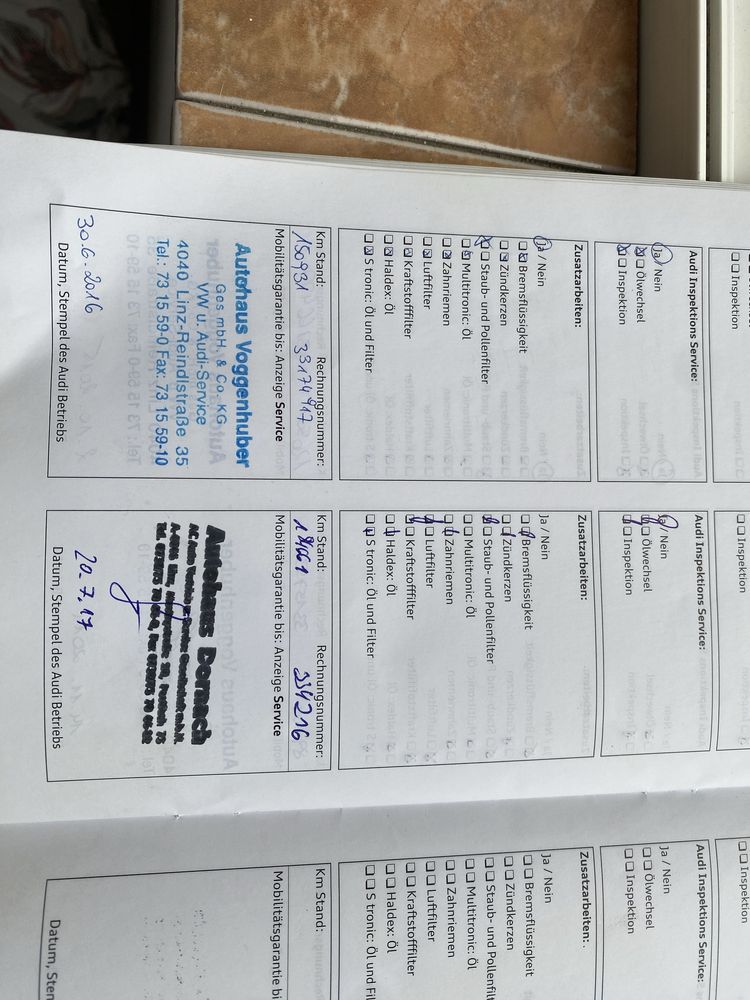 Inspektion
Audi Inspektions Service:
Ja / Nein
Ölwechsel
Inspektion
Zusatzarbeiten:
Ja / Nein
Bremsflüssigkeit
Zündkerzen
Staub- und Pollenfilter
Multitronic: Öl
Zahnriemen
Luftfilter
Kraftstofffilter
Haldex: Öl
S tronic: Öl und Filter
Km Stand: Rechnungsnummer:
150931 33174917
Mobilitätsgarantie bis: Anzeige Service
Autohaus Voggenhuber
Ges mbH & Co. KG
VW u. Audi-Service
4040 Linz-Reindlstraße 35
Tel.: 73 15 59-0 Fax: 73 15 59-10
30.6.2016
Datum, Stempel des Audi Betriebs
Inspektion
Audi Inspektions Service:
Ja / Nein
Ölwechsel
Inspektion
Zusatzarbeiten:
Ja / Nein
Bremsflüssigkeit
Zündkerzen
Staub- und Pollenfilter
Multitronic: Öl
Zahnriemen
Luftfilter
Kraftstofffilter
Haldex: Öl
S tronic: Öl und Filter
Km Stand: Rechnungsnummer:
334216
Mobilitätsgarantie bis: Anzeige Service
Autohaus Dornach
20.7.17
Datum, Stempel des Audi Betriebs
Inspektion
Audi Inspektions Service:
Ja / Nein
Ölwechsel
Inspektion
Zusatzarbeiten:
Ja / Nein
Bremsflüssigkeit
Zündkerzen
Staub- und Pollenfilt
Multitronic: Öl
Zahnriemen
Luftfilter
Kraftstofffilter
Haldex: Öl
S tronic: Öl und Fil
Km Stand:
Mobilitätsgarantie bi
Datum, Sten